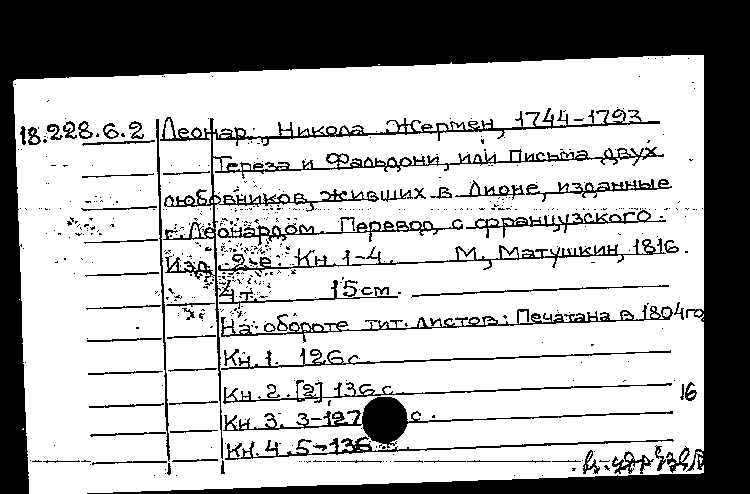 18.228.6.2 Леонар, Никола Жермен, 1744-1793
Тереза и Фальдони, или Письма двух
любовников, живших в Лионе, изданные
г. Леонардом. Перевод с французского.
Изд. 2-е. Кн. 1-4. М., Матушкин, 1816.
4 т. 15 см.
На обороте тит. листов: Печатана в 1804 го
Кн. 1. 126 с.
Кн. 2. [2], 136 с.
16
Кн. 3. 3-127 с.
Кн. 4. 5-136